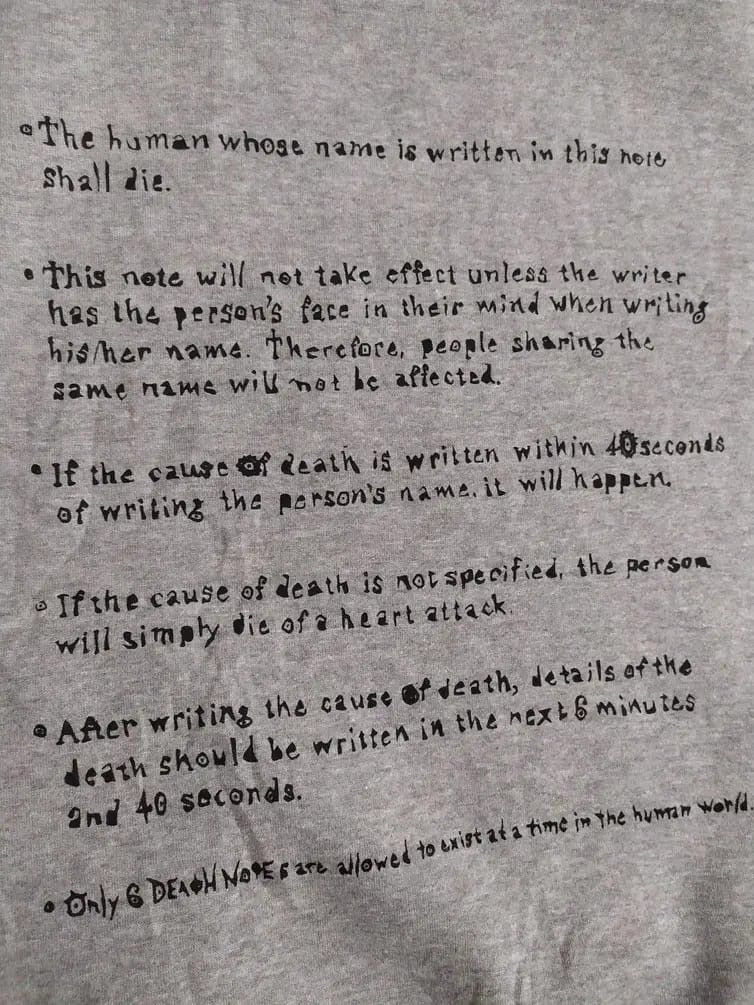 • The human whose name is written in this note
shall die.
• This note will not take effect unless the writer
has the person's face in their mind when writing
his/her name. Therefore, people sharing the
same name will not be affected.
• If the cause of death is written within 40 seconds
of writing the person's name, it will happen.
• If the cause of death is not specified, the person
will simply die of a heart attack.
• After writing the cause of death, details of the
death should be written in the next 6 minutes
and 40 seconds.
• Only 6 DEATH NOTES are allowed to exist at a time in the human world.